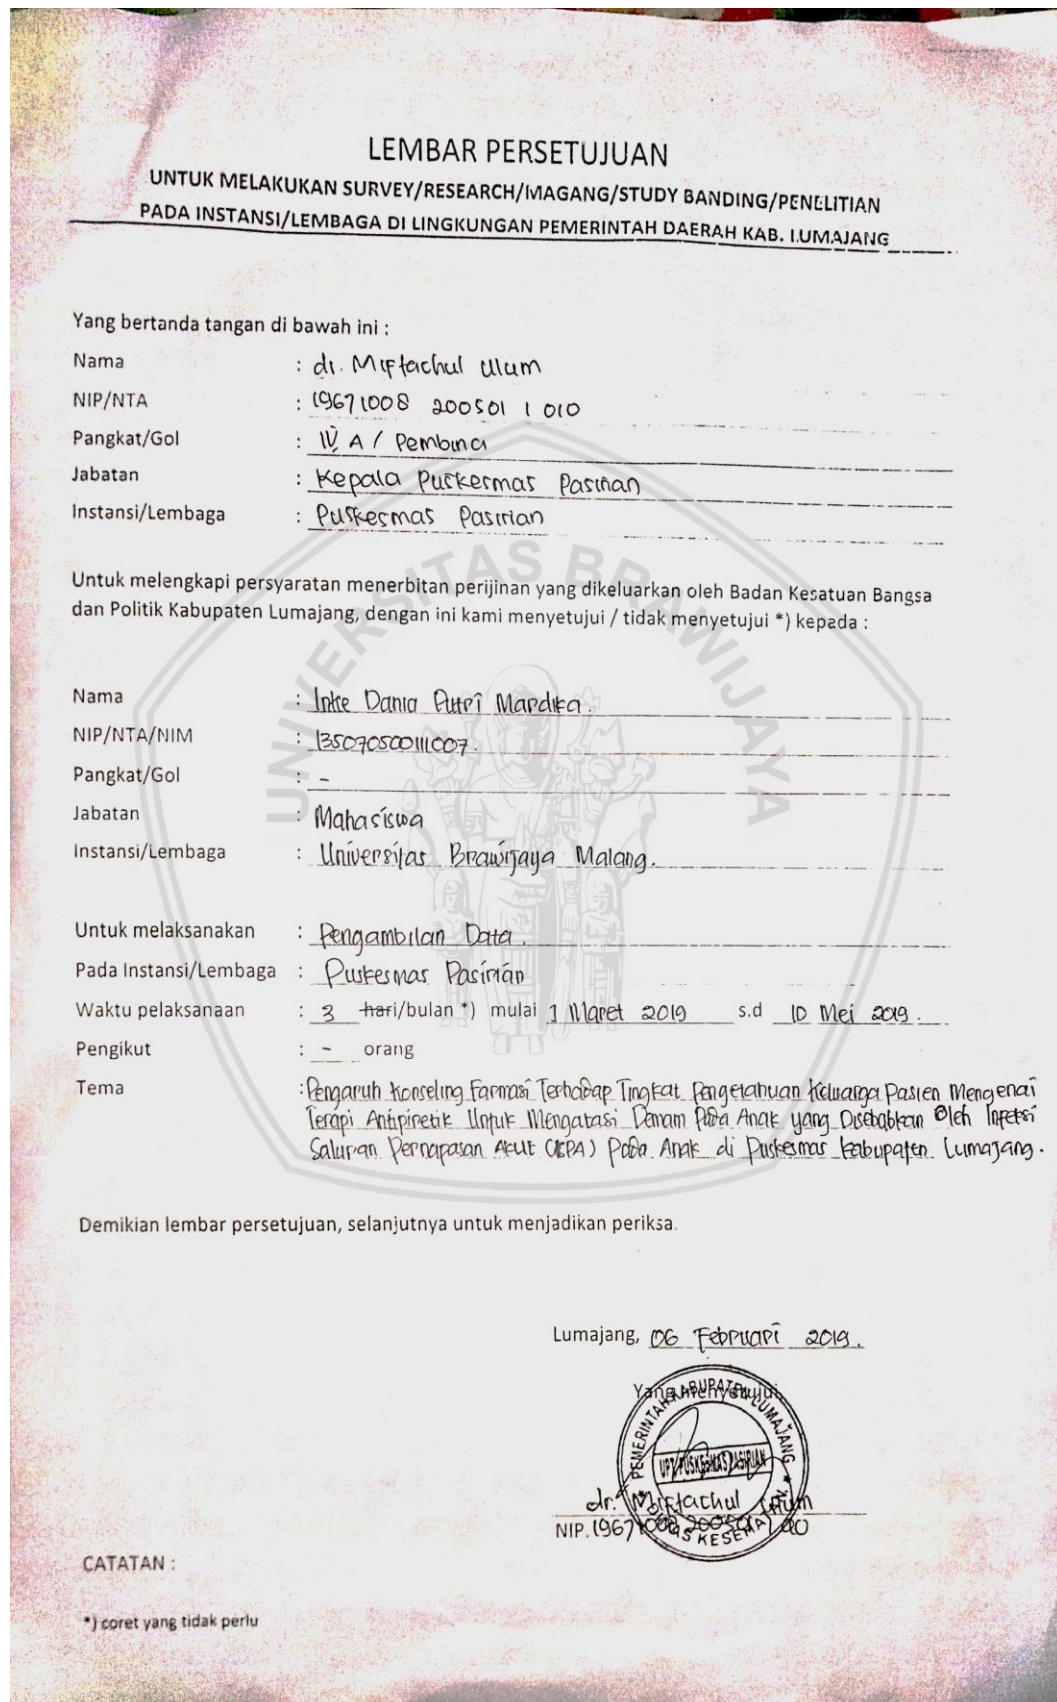 LEMBAR PERSETUJUAN
UNTUK MELAKUKAN SURVEY/RESEARCH/MAGANG/STUDY BANDING/PENELITIAN
PADA INSTANSI/LEMBAGA DI LINGKUNGAN PEMERINTAH DAERAH KAB. LUMAJANG
Yang bertanda tangan di bawah ini :
Nama : dr. Miftachul Ulum
NIP/NTA : 19671008 200501 1 010
Pangkat/Gol : IV A / Pembina
Jabatan : Kepala Puskesmas Pasirian
Instansi/Lembaga : Puskesmas Pasirian
Untuk melengkapi persyaratan menerbitan perijinan yang dikeluarkan oleh Badan Kesatuan Bangsa
dan Politik Kabupaten Lumajang, dengan ini kami menyetujui / tidak menyetujui *) kepada :
Nama : Inke Dania Putri Mardika.
NIP/NTA/NIM : 135070500111007.
Pangkat/Gol : -
Jabatan : Mahasiswa
Instansi/Lembaga : Universitas Brawijaya Malang.
Untuk melaksanakan : Pengambilan Data.
Pada Instansi/Lembaga : Puskesmas Pasirian
Waktu pelaksanaan : 3 hari/bulan *) mulai 1 Maret 2019 s.d 10 Mei 2019.
Pengikut : - orang
Tema : Pengaruh Konseling Farmasi Terhadap Tingkat Pengetahuan Keluarga Pasien Mengenai
Terapi Antipiretik Untuk Mengatasi Demam Pada Anak yang Disebabkan Oleh Infeksi
Saluran Pernapasan Akut (ISPA) Pada Anak di Puskesmas Kabupaten Lumajang.
Demikian lembar persetujuan, selanjutnya untuk menjadikan periksa.
Lumajang, 06 Februari 2019.
Yang Menyetujui
PEMERINTAH KABUPATEN LUMAJANG
UPT PUSKESMAS PASIRIAN
DINAS KESEHATAN
dr. Miftachul Ulum
NIP. 19671008 200501 1 010
CATATAN :
*) coret yang tidak perlu
UNIVERSITAS BRAWIJAYA